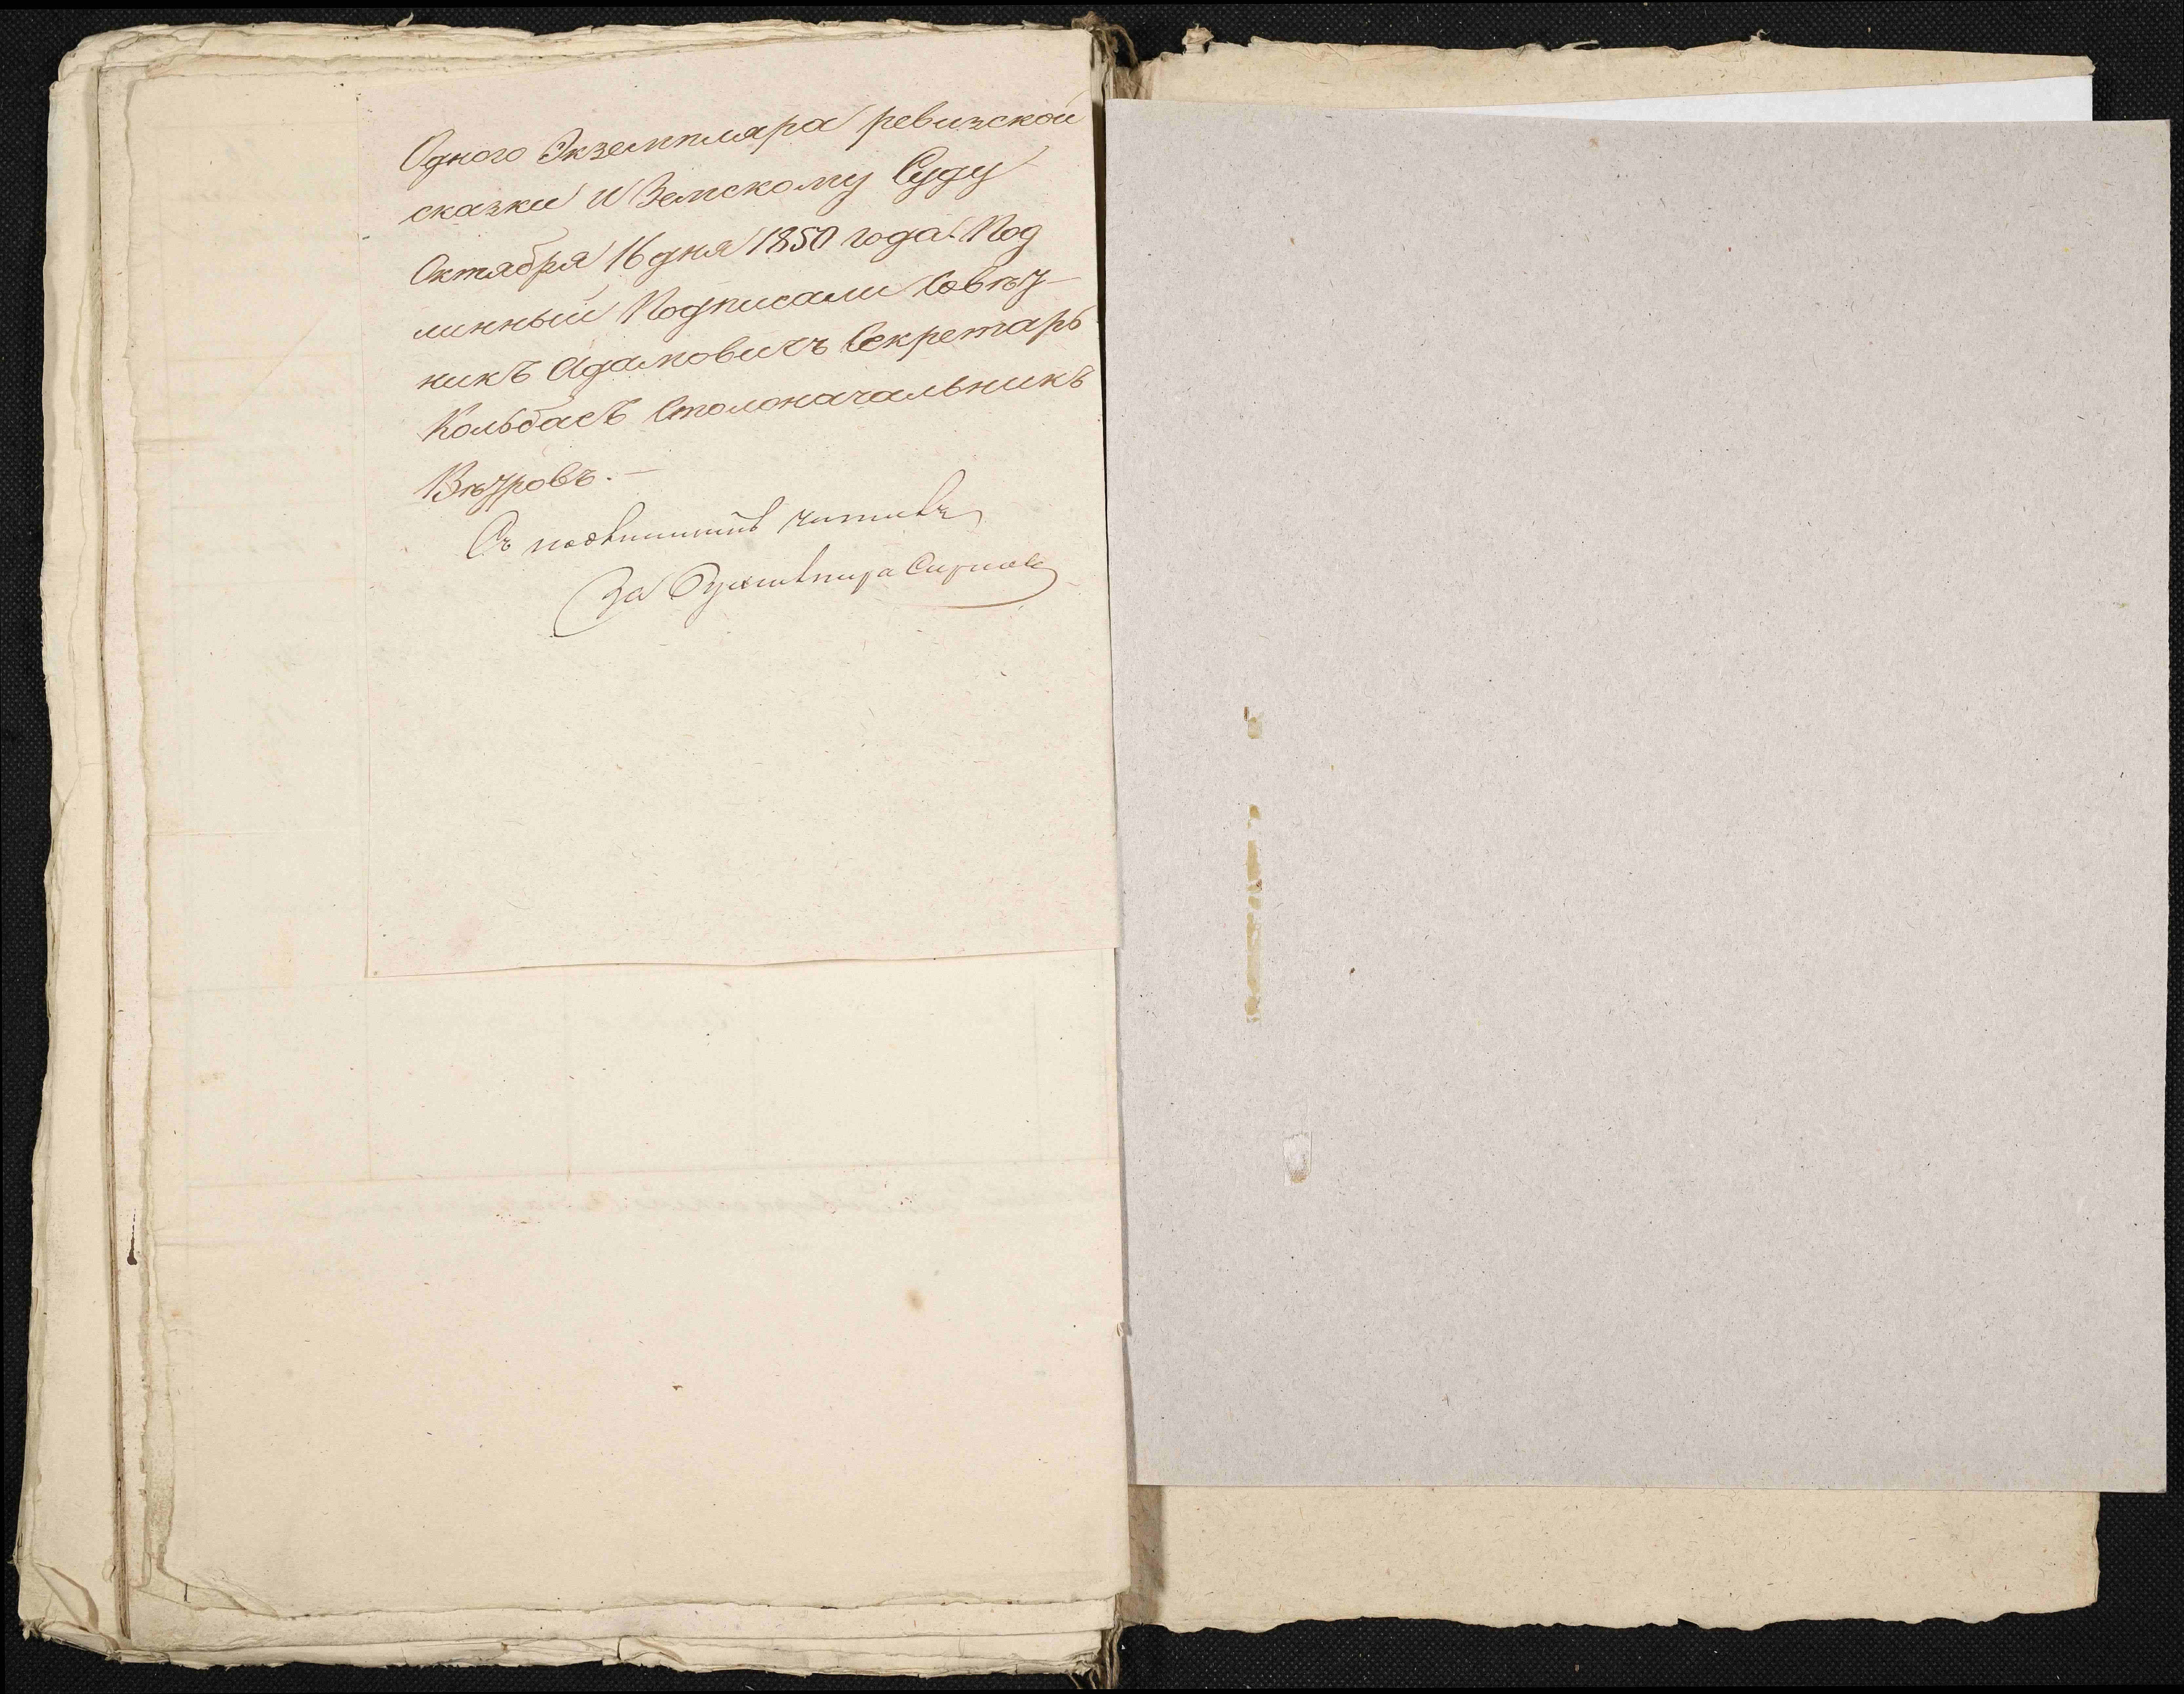 Одного Экземпляра ревизской
сказки и Земскому Суду
Октября 16 дня 1850 года. Под
линный Подписали Совѣт
никъ Адамовичъ Секретарь
Кольбасъ Столоначальникъ
Вѣтровъ. —
Съ подлиннымъ читалъ
За